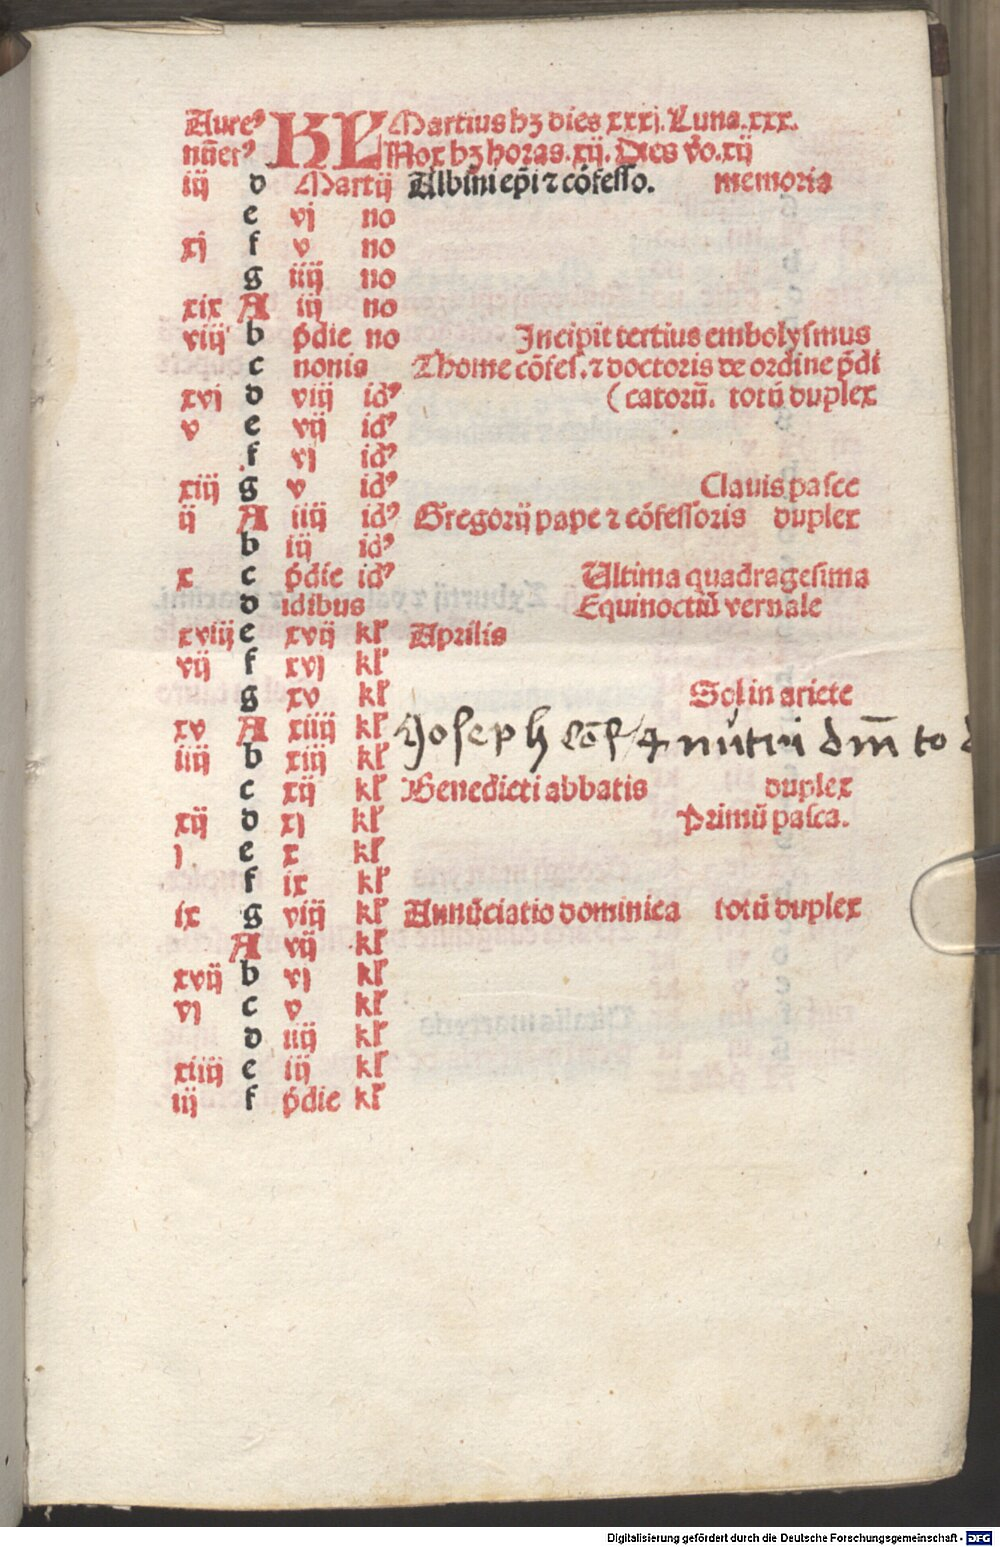 Aureꝰ KL Martius hꝫ dies xxxj. Luna.xxx.
nūerꝰ Nox hꝫ horas.xij. Dies vo.xij
iij d Martij Albini ep̄i ⁊ cōfesso. memoria
e vj no
xj f v no
g iiij no
xix A iij no
viij b p̄die no Incipit tertius embolysmus
c nonis Thome cōfes. ⁊ doctoris de ordine p̄di
xvj d viij idꝰ (catorū. totū duplex
v e vij idꝰ
f vj idꝰ
xiij g v idꝰ Clavis pasce
ij A iiij idꝰ Gregorij pape ⁊ cōfessoris duplex
b iij idꝰ
x c p̄die idꝰ Ultima quadragesima
d idibus Equinoctiū vernale
xviij e xvij kl̕ Aprilis
vij f xvj kl̕
g xv kl̕ Sol in ariete
xv A xiiij kl̕ Joseph cōf
iiij b xiij kl̕ nūtrij dm̄ to d
c xij kl̕ Benedicti abbatis duplex
xij d xj kl̕ Primū pasca.
j e x kl̕
f ix kl̕
ix g viij kl̕ Annūciatio dominica totū duplex
A vij kl̕
xvij b vj kl̕
vj c v kl̕
d iiij kl̕
xiiij e iij kl̕
iij f p̄die kl̕
Digitalisierung gefördert durch die Deutsche Forschungsgemeinschaft - DFG